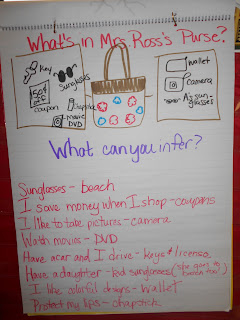 What's in Mrs. Ross's Purse?
Key
Sunglasses
50¢ off
coupon
Chapstick
movie
DVD
wallet
camera
A's sun-
glasses
What can you infer?
Sunglasses - beach
I save money when I shop - coupons
I like to take pictures - camera
Watch movies - DVD
Have a car and I drive - keys + license
Have a daughter - kid sunglasses (she goes to
beach too)
I like colorful designs - wallet
Protect my lips - chapstick